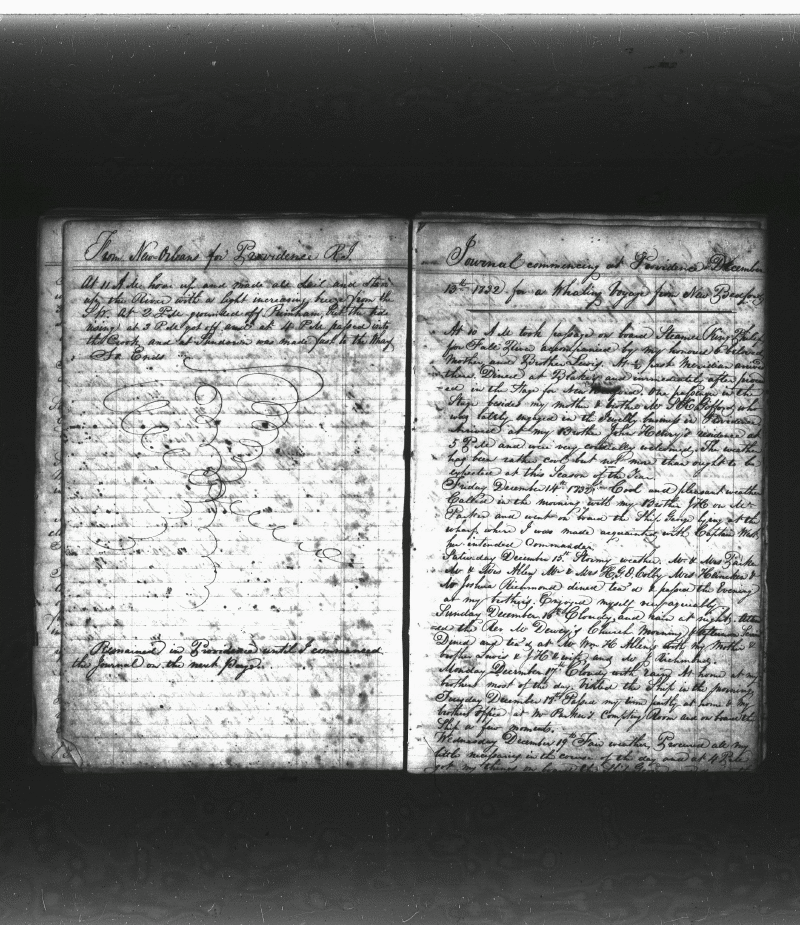 From New Orleans for Providence R.I.
At 11 A.M. hove up and made all sail and stood
up the River with a light increasing breeze from the
S.W. At 2 P.M. grounded off Pawtuxet, but the tide
rising at 3 P.M. got off and at 4 P.M. passed into
the Crook and at Sundown was made fast to the Wharf
So Ends
Remained in Providence until I commenced
the Journal on the next page.
Journal commencing at Providence December
13th 1832 for a Whaling Voyage from New Bedford
At 10 A.M. took passage on board Steamer King Philip
for Fall River accompanied by my honored & beloved
Mother and Brother Lewis. At past Meridian arrived
there Dined at and immediately after
ed in the Stage for New Bedford. One passenger in the
Stage besides my mother & brother Mr. who
was lately engaged in the business in Providence
Arrived at my Brother John Henry's residence at
5 P.M. and was very cordially welcomed. The weather
has been rather cool but no more than ought to be
expected at this Season of the Year
Friday December 14th 1832 Cool and pleasant weather
Called in the morning with my Brother J H on Mr.
Parker and went on board the Ship George lying at the
wharf where I was made acquainted with Captain
intended Commander
Saturday December 15th Stormy weather. Mr. & Mrs. Parker
Mr. & Mrs. Allen Mr. & Mrs. H.G.O. Colby Mrs. &
Mr. Joshua Richmond dined tea'd & passed the Evening
at my brother's. Enjoyed myself very agreeably
Sunday December 16th Cloudy and rain at night. Atten
ed the Rev. Mr. Dewey's Church Morning & Afternoon
Dined and tea'd at Mr. Wm. H. Allens with my Mother &
brother Lewis & J H & wife and Mr. Richmond.
Monday December 17th Cloudy with rain. At home at my
brothers most of the day. Visited the Ship in the morning
Tuesday December 18th Passed my time partly at home & my
brothers Office, at Mr. Parker's Compting Room and on board the
Ship a few moments.
Wednesday December 19th Fair weather. Procured all my
little necessaries in the course of the day and at 4 P.M.
got my things on board